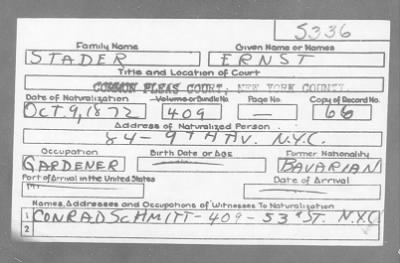 S336
Family Name Given Name or Names
STADER ERNST
Title and Location of Court
COMMON PLEAS COURT, NEW YORK COUNTY.
Date of Naturalization Volume or Bundle No. Page No. Copy of Record No.
OCT. 9, 1872 409 — 66
Address of Naturalized Person
84 - 9TH AV. N.Y.C.
Occupation Birth Date or Age Former Nationality
GARDENER BAVARIAN
Port of Arrival in the United States Date of Arrival
Names, Addresses and Occupations of Witnesses To Naturalization
1 CONRAD SCHMITT - 409 - 53d ST. N.Y.C
2